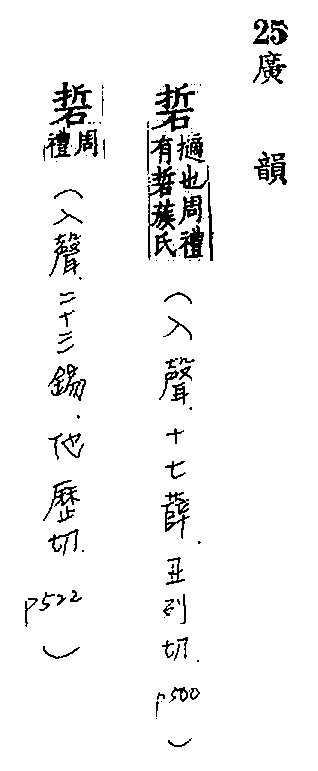 25 廣韻
硩 擿也周禮有硩蔟氏 (入聲.十七薛.丑列切.p500)
硩 周禮 (入聲.二十三錫.他歷切.p522)